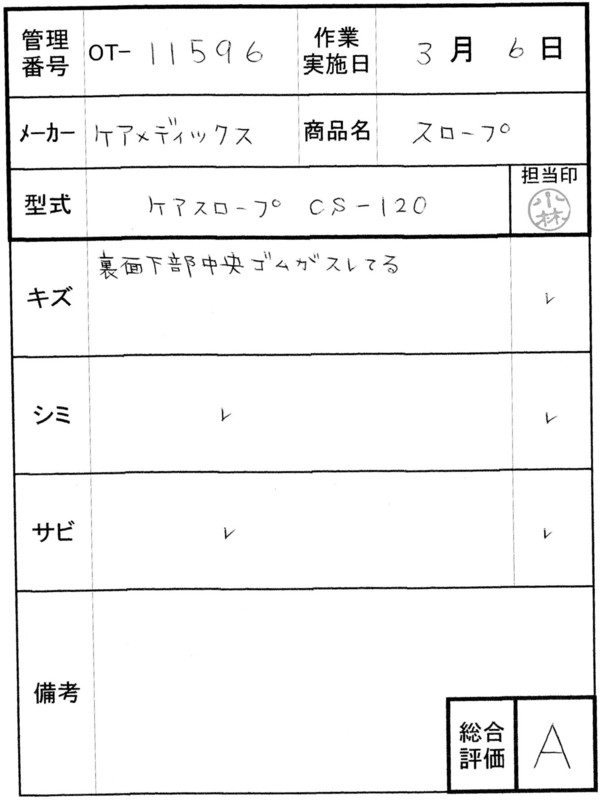 管理番号 OT-11596 作業実施日 3月6日
メーカー ケアメディックス 商品名 スロープ
型式 ケアスロープ CS-120 担当印 小林
キズ 裏面下部中央ゴムがスレてる ✓
シミ ✓ ✓
サビ ✓ ✓
備考
総合評価 A